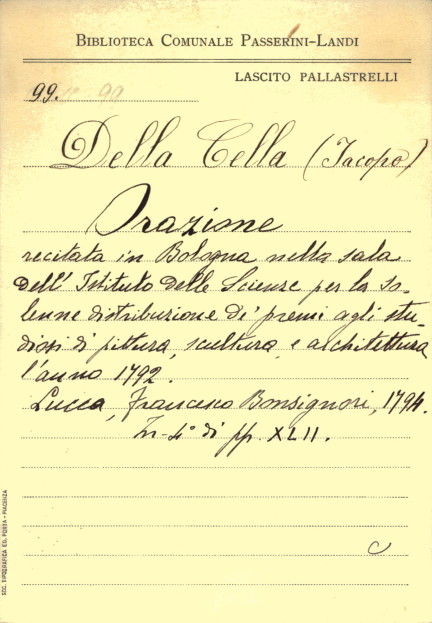 BIBLIOTECA COMUNALE PASSERINI-LANDI
LASCITO PALLASTRELLI
99. 99
Della Cella (Jacopo)
Orazione
recitata in Bologna nella sala
dell' Istituto delle Scienze per la so-
lenne distribuzione de' premi agli stu-
diosi di pittura, scultura, e architettura
l'anno 1792.
Lucca, Francesco Bonsignori, 1794.
In-4° di pp. XLII.
C
SOC. TIPOGRAFICA ED. PORTA - PIACENZA